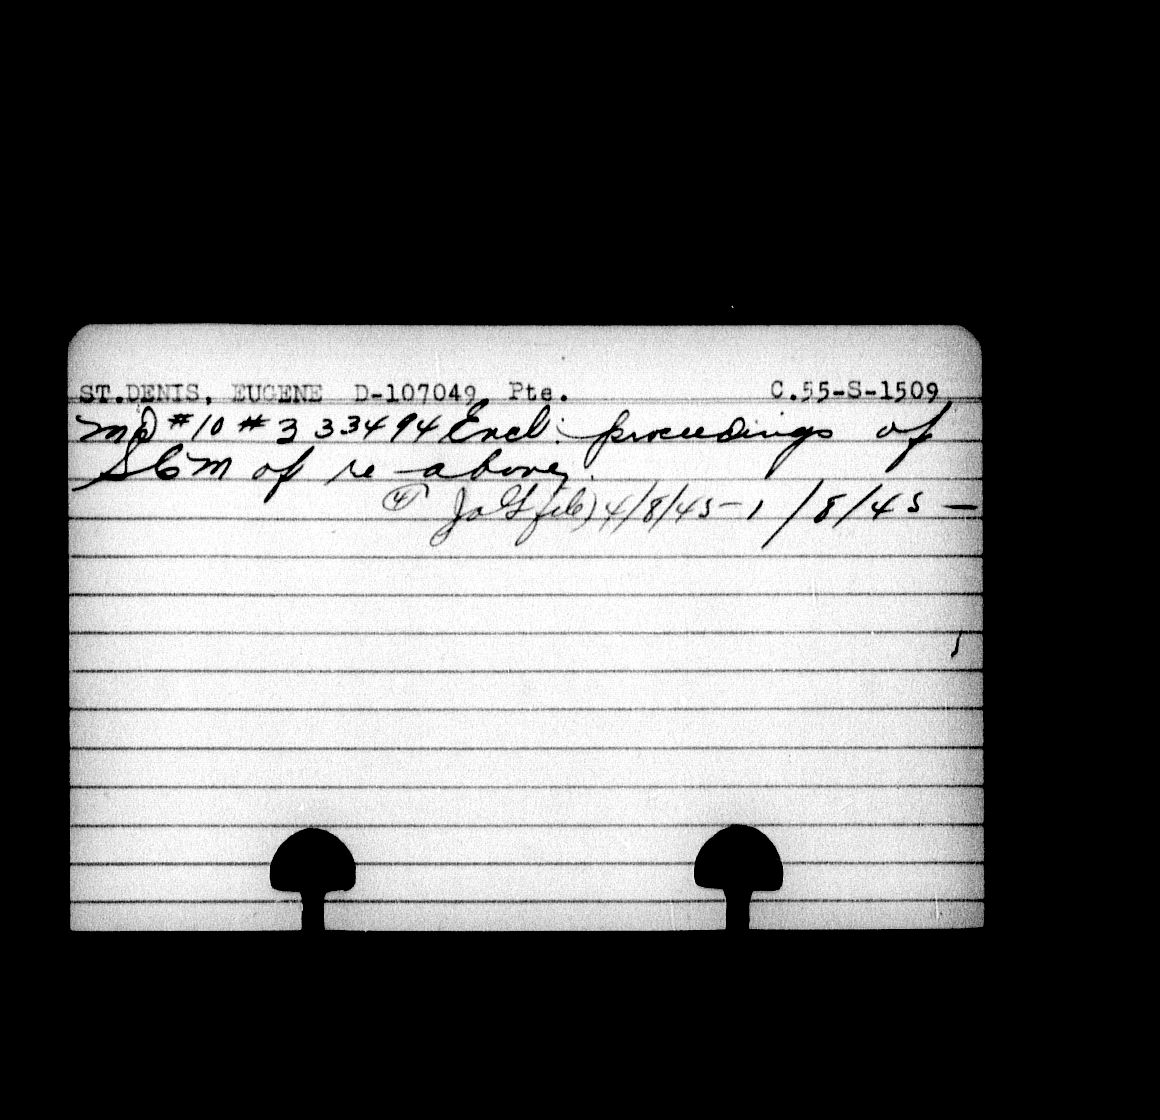 ST.DENIS, EUGENE D-107049 Pte. C.55-S-1509
MD #10 #3 33494 Encl: proceedings of
SCM of re above.
4/8/45 - 1/8/45 -